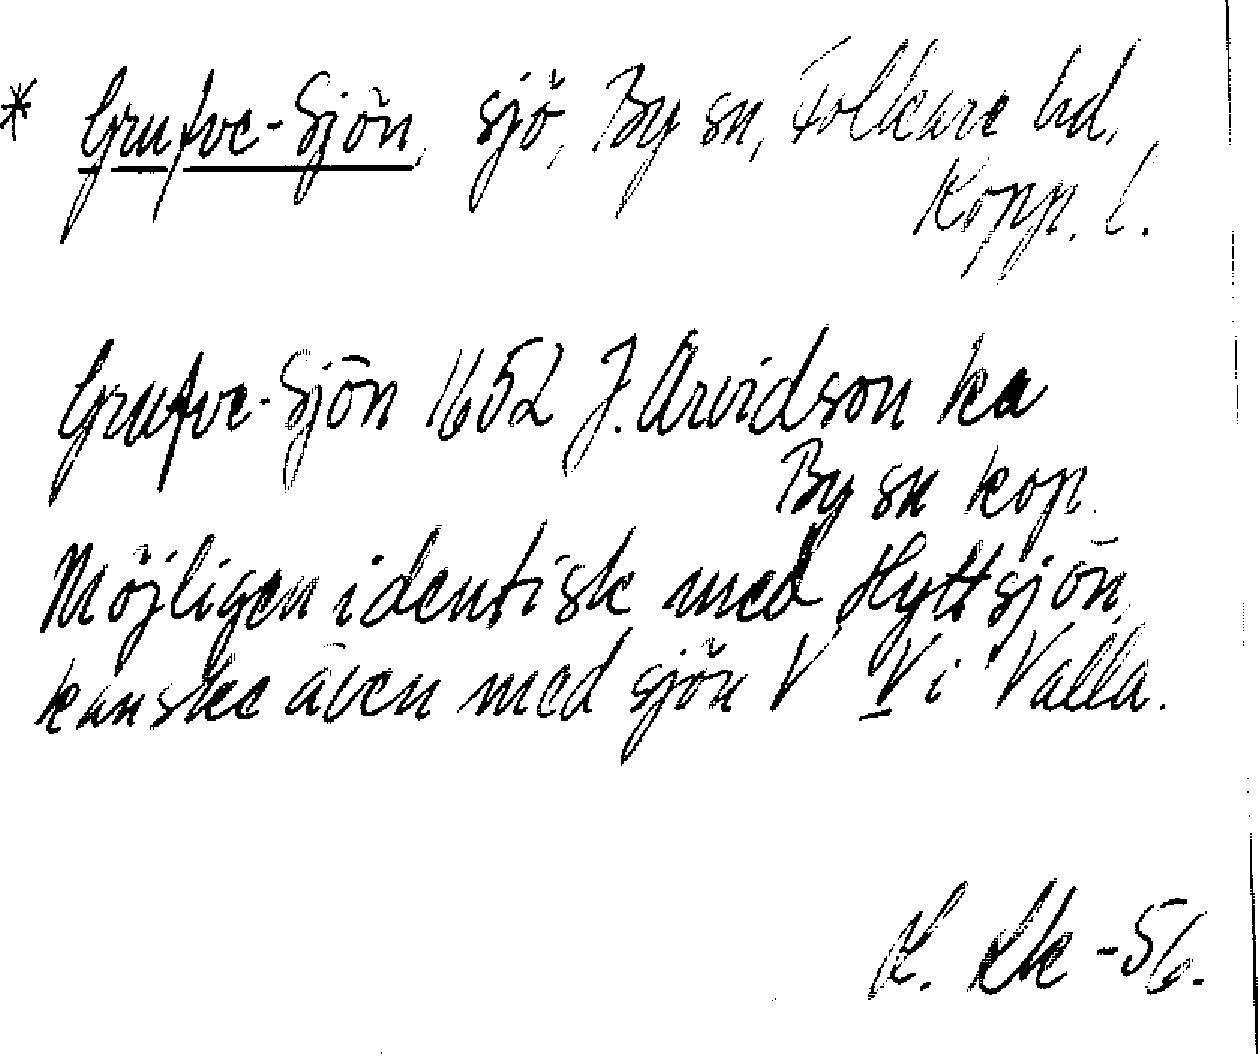 * Grufve-Sjön, sjö, By sn, Folkare hd,
Kopp. l.
Grufve-Sjön 1652 J. Arvidson ka
By sn kop.
Möjligen identisk med Hyttsjön,
kanske även med sjön V V i Valla.
K. -56.